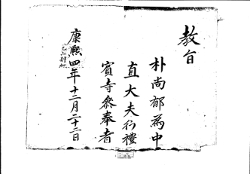 教旨
朴尚郁為中
直大夫行禮
賓寺參奉者
康熙四年十二月二十二日